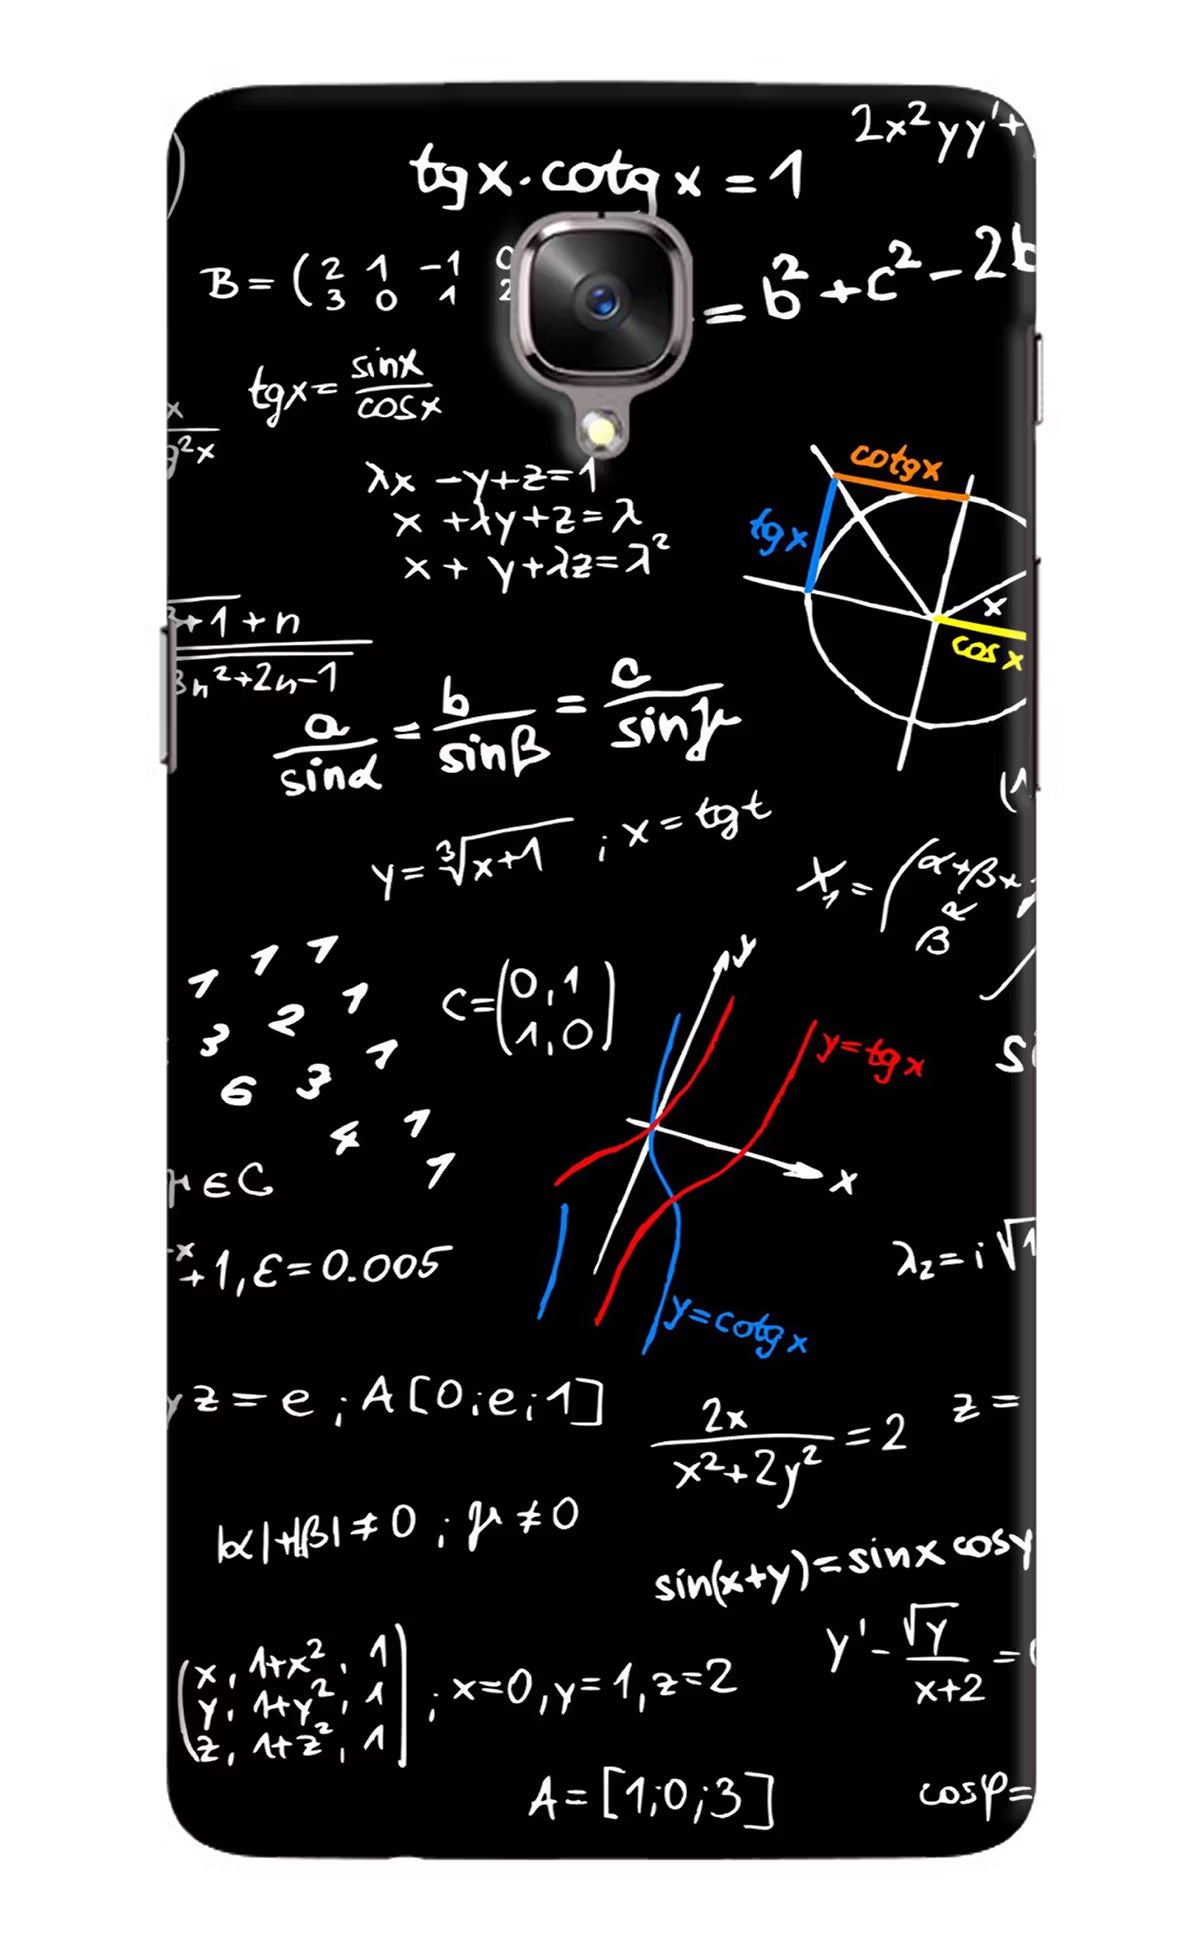 2x²yy'+
tgx·cotgx=1
B=(2 1 -1 0
3 0 1 2
=b²+c²-2b
tgx=sinx/cosx
x
g²x
λx-y+z=1
x+λy+z=λ
x+y+λz=λ²
cotgx
tgx
x
cosx
3+1+n
3n²+2n-1
a/sinα=b/sinβ=c/sinμ
y=∛(x+1) ; x=tgt
(1
X₁=(α+βx
β
1 1 1
3 2 1
6 3 1
4 1
1
C=(0,1
1,0)
y
y=tgx
x
y=cotgx
si
μ∈C
-x
+1,ε=0.005
λ₂=i√1
yz=e ; A[0;e;1]
2x/(x²+2y²)=2
z=
|α|+|β|≠0 ; μ≠0
sin(x+y)=sinx cosy
y'-√y/(x+2)=0
(x, 1+x², 1
y, 1+y², 1
z, 1+z², 1) ; x=0,y=1,z=2
A=[1;0;3]
cosφ=